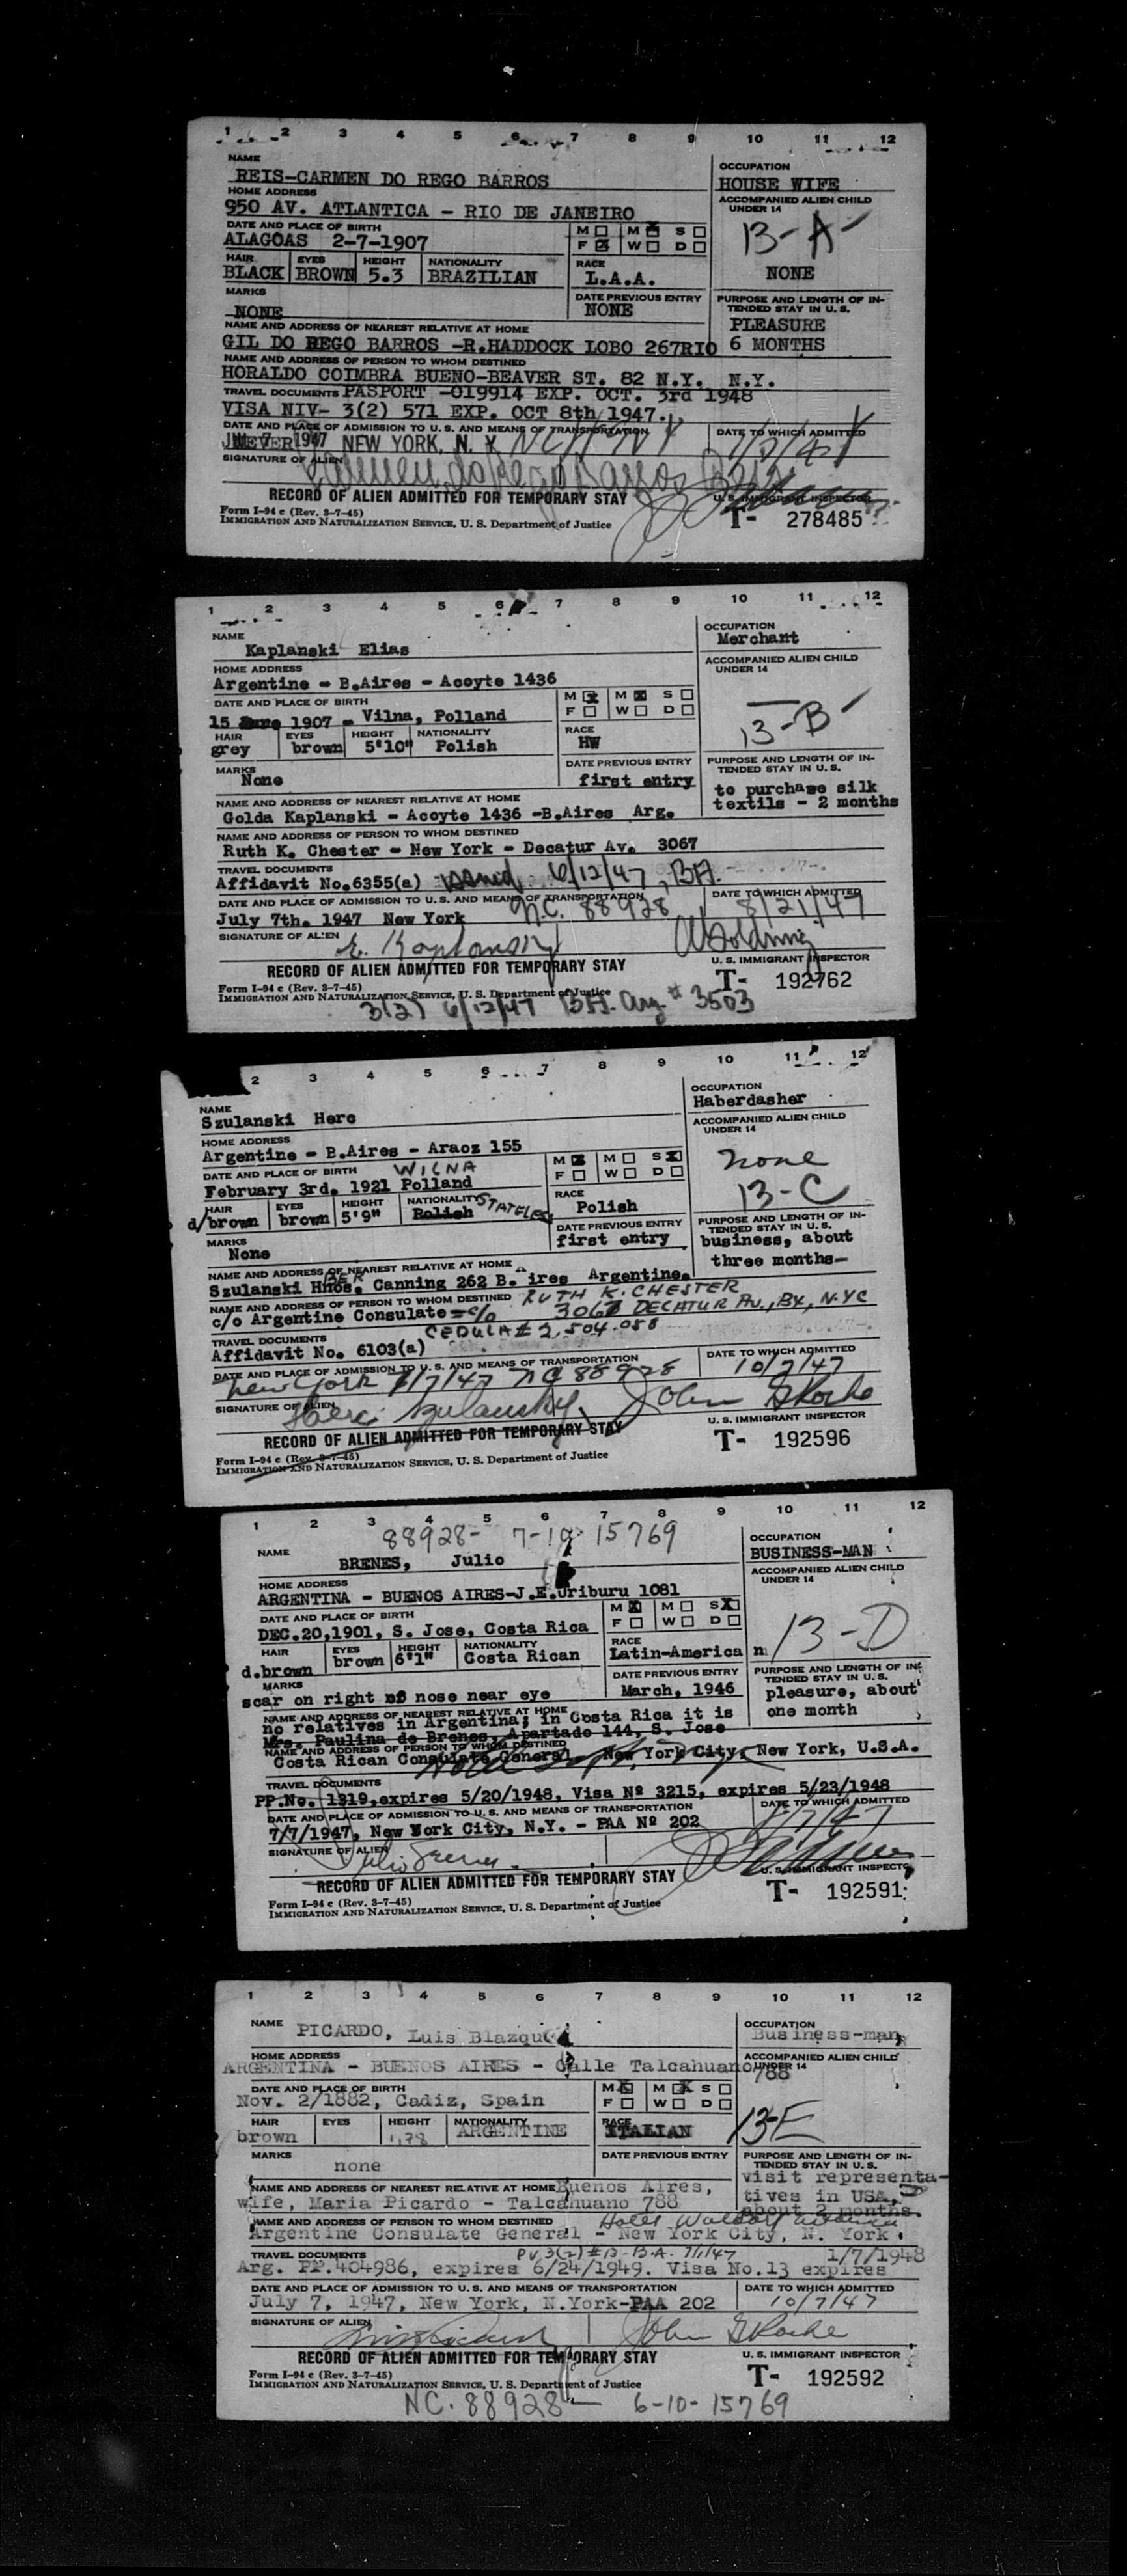 1 2 3 4 5 6 7 8 9 10 11 12
NAME
REIS-CARMEN DO REGO BARROS
OCCUPATION
HOUSE WIFE
HOME ADDRESS
950 AV. ATLANTICA - RIO DE JANEIRO
ACCOMPANIED ALIEN CHILD
UNDER 14
13-A
NONE
DATE AND PLACE OF BIRTH
ALAGOAS 2-7-1907
M M S
F W D
HAIR EYES HEIGHT NATIONALITY RACE
BLACK BROWN 5.3 BRAZILIAN L.A.A.
MARKS
NONE
DATE PREVIOUS ENTRY
NONE
PURPOSE AND LENGTH OF IN-
TENDED STAY IN U. S.
PLEASURE
6 MONTHS
NAME AND ADDRESS OF NEAREST RELATIVE AT HOME
GIL DO REGO BARROS -R.HADDOCK LOBO 267RIO
NAME AND ADDRESS OF PERSON TO WHOM DESTINED
HORALDO COIMBRA BUENO-BEAVER ST. 82 N.Y. N.Y.
TRAVEL DOCUMENTS PASPORT -019914 EXP. OCT. 3rd 1948
VISA NIV- 3(2) 571 EXP. OCT 8th/1947.
DATE AND PLACE OF ADMISSION TO U. S. AND MEANS OF TRANSPORTATION
DATE TO WHICH ADMITTED
7 1947 NEW YORK, N. Y.
SIGNATURE OF ALIEN
Carmen do Rego Barros Reis
RECORD OF ALIEN ADMITTED FOR TEMPORARY STAY
U. S. IMMIGRANT INSPECTOR
Form I-94 c (Rev. 3-7-45)
IMMIGRATION AND NATURALIZATION SERVICE, U. S. Department of Justice
T- 278485
1 2 3 4 5 6 7 8 9 10 11 12
NAME
Kaplanski Elias
OCCUPATION
Merchant
HOME ADDRESS
Argentine - B.Aires - Acoyte 1436
ACCOMPANIED ALIEN CHILD
UNDER 14
13-B
DATE AND PLACE OF BIRTH
15 June 1907 - Vilna, Polland
M M S
F W D
HAIR EYES HEIGHT NATIONALITY RACE
grey brown 5'10" Polish HW
MARKS
None
DATE PREVIOUS ENTRY
first entry
PURPOSE AND LENGTH OF IN-
TENDED STAY IN U. S.
to purchase silk
textils - 2 months
NAME AND ADDRESS OF NEAREST RELATIVE AT HOME
Golda Kaplanski - Acoyte 1436 -B.Aires Arg.
NAME AND ADDRESS OF PERSON TO WHOM DESTINED
Ruth K. Chester - New York - Decatur Av. 3067
TRAVEL DOCUMENTS
Affidavit No.6355(a) issued 6/12/47, BA.
DATE AND PLACE OF ADMISSION TO U. S. AND MEANS OF TRANSPORTATION
DATE TO WHICH ADMITTED
July 7th. 1947 New York N.C. 88928 8/21/47
SIGNATURE OF ALIEN
E. Kaplansky
RECORD OF ALIEN ADMITTED FOR TEMPORARY STAY
U. S. IMMIGRANT INSPECTOR
Form I-94 c (Rev. 3-7-45)
IMMIGRATION AND NATURALIZATION SERVICE, U. S. Department of Justice
T- 192762
3(2) 6/12/47 BA. Arg # 3503
2 3 4 5 6 7 8 9 10 11 12
NAME
Szulanski Herc
OCCUPATION
Haberdasher
HOME ADDRESS
Argentine - B.Aires - Araoz 155
ACCOMPANIED ALIEN CHILD
UNDER 14
none
13-C
DATE AND PLACE OF BIRTH WILNA
February 3rd. 1921 Polland
M M S
F W D
HAIR EYES HEIGHT NATIONALITY RACE
d/brown brown 5'9" Polish STATELESS Polish
MARKS
None
DATE PREVIOUS ENTRY
first entry
PURPOSE AND LENGTH OF IN-
TENDED STAY IN U. S.
business, about
three months-
NAME AND ADDRESS OF NEAREST RELATIVE AT HOME
Szulanski Hnos. BER Canning 262 B. Aires Argentine.
NAME AND ADDRESS OF PERSON TO WHOM DESTINED RUTH K. CHESTER
c/o Argentine Consulate = c/o 3067 DECATUR AV., BX, N.Y.C
TRAVEL DOCUMENTS CEDULA # 2.504.058
Affidavit No. 6103(a)
DATE AND PLACE OF ADMISSION TO U. S. AND MEANS OF TRANSPORTATION
DATE TO WHICH ADMITTED
New York 7/7/47 NC 88928 10/7/47
SIGNATURE OF ALIEN
Herc Szulansky John G Roche
RECORD OF ALIEN ADMITTED FOR TEMPORARY STAY
U. S. IMMIGRANT INSPECTOR
Form I-94 c (Rev. 3-7-45)
IMMIGRATION AND NATURALIZATION SERVICE, U. S. Department of Justice
T- 192596
1 2 3 4 5 6 7 8 9 10 11 12
88928- 7-10-15769
NAME
BRENES, Julio
OCCUPATION
BUSINESS-MAN
HOME ADDRESS
ARGENTINA - BUENOS AIRES-J.E.Uriburu 1081
ACCOMPANIED ALIEN CHILD
UNDER 14
13-D
DATE AND PLACE OF BIRTH
DEC.20,1901, S. Jose, Costa Rica
M M S
F W D
HAIR EYES HEIGHT NATIONALITY RACE
d.brown brown 6'1" Costa Rican Latin-American
MARKS
scar on right of nose near eye
DATE PREVIOUS ENTRY
March, 1946
PURPOSE AND LENGTH OF IN-
TENDED STAY IN U. S.
pleasure, about
one month
NAME AND ADDRESS OF NEAREST RELATIVE AT HOME
no relatives in Argentina; in Costa Rica it is
Mrs. Paulina de Brenes, Apartado 144, S. Jose
NAME AND ADDRESS OF PERSON TO WHOM DESTINED
Costa Rican Consulate General, New York City, New York, U.S.A.
TRAVEL DOCUMENTS
PP.No. 1319,expires 5/20/1948, Visa Nº 3215, expires 5/23/1948
DATE AND PLACE OF ADMISSION TO U. S. AND MEANS OF TRANSPORTATION
DATE TO WHICH ADMITTED
7/7/1947, New York City, N.Y. - PAA Nº 202 8/7/47
SIGNATURE OF ALIEN
Julio Brenes
RECORD OF ALIEN ADMITTED FOR TEMPORARY STAY
U. S. IMMIGRANT INSPECTOR
Form I-94 c (Rev. 3-7-45)
IMMIGRATION AND NATURALIZATION SERVICE, U. S. Department of Justice
T- 192591
1 2 3 4 5 6 7 8 9 10 11 12
NAME PICARDO, Luis Blazquez
OCCUPATION
Business-man
HOME ADDRESS
ARGENTINA - BUENOS AIRES - Calle Talcahuano 788
ACCOMPANIED ALIEN CHILD
UNDER 14
13-E
DATE AND PLACE OF BIRTH
Nov. 2/1882, Cadiz, Spain
M M S
F W D
HAIR EYES HEIGHT NATIONALITY RACE
brown 1,78 ARGENTINE ITALIAN
MARKS
none
DATE PREVIOUS ENTRY
PURPOSE AND LENGTH OF IN-
TENDED STAY IN U. S.
visit representa-
tives in USA,
about 2 months.
NAME AND ADDRESS OF NEAREST RELATIVE AT HOME Buenos Aires,
wife, Maria Picardo - Talcahuano 788
NAME AND ADDRESS OF PERSON TO WHOM DESTINED Hotel Waldorf Astoria
Argentine Consulate General - New York City, N. York.
TRAVEL DOCUMENTS PV 3(2) # 13 - B.A. 7/1/47 1/7/1948
Arg. PP.404986, expires 6/24/1949. Visa No.13 expires
DATE AND PLACE OF ADMISSION TO U. S. AND MEANS OF TRANSPORTATION
DATE TO WHICH ADMITTED
July 7, 1947, New York, N.York-PAA 202 10/7/47
SIGNATURE OF ALIEN
John G Roche
RECORD OF ALIEN ADMITTED FOR TEMPORARY STAY
U. S. IMMIGRANT INSPECTOR
Form I-94 c (Rev. 3-7-45)
IMMIGRATION AND NATURALIZATION SERVICE, U. S. Department of Justice
T- 192592
NC. 88928- 6-10-15769